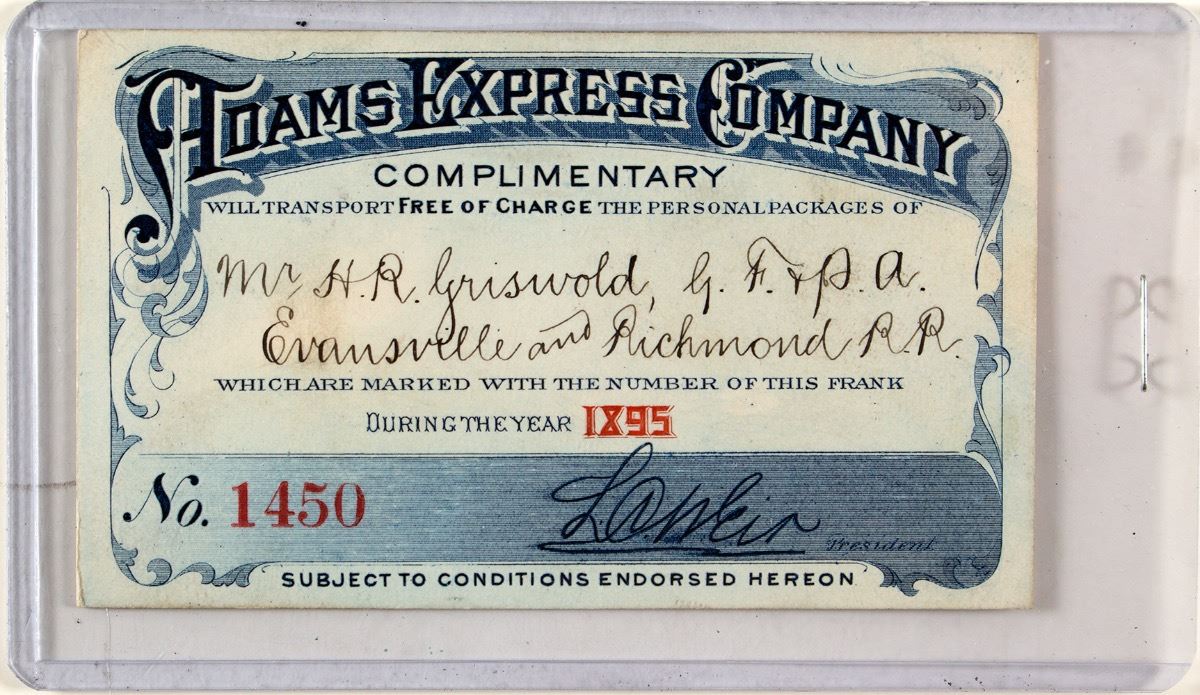 ADAMS EXPRESS COMPANY
COMPLIMENTARY
WILL TRANSPORT FREE OF CHARGE THE PERSONAL PACKAGES OF
Mr H. R. Griswold, G. F. & P. A.
Evansville and Richmond R. R.
WHICH ARE MARKED WITH THE NUMBER OF THIS FRANK
DURING THE YEAR 1895
No. 1450
L C Weir
President
SUBJECT TO CONDITIONS ENDORSED HEREON.